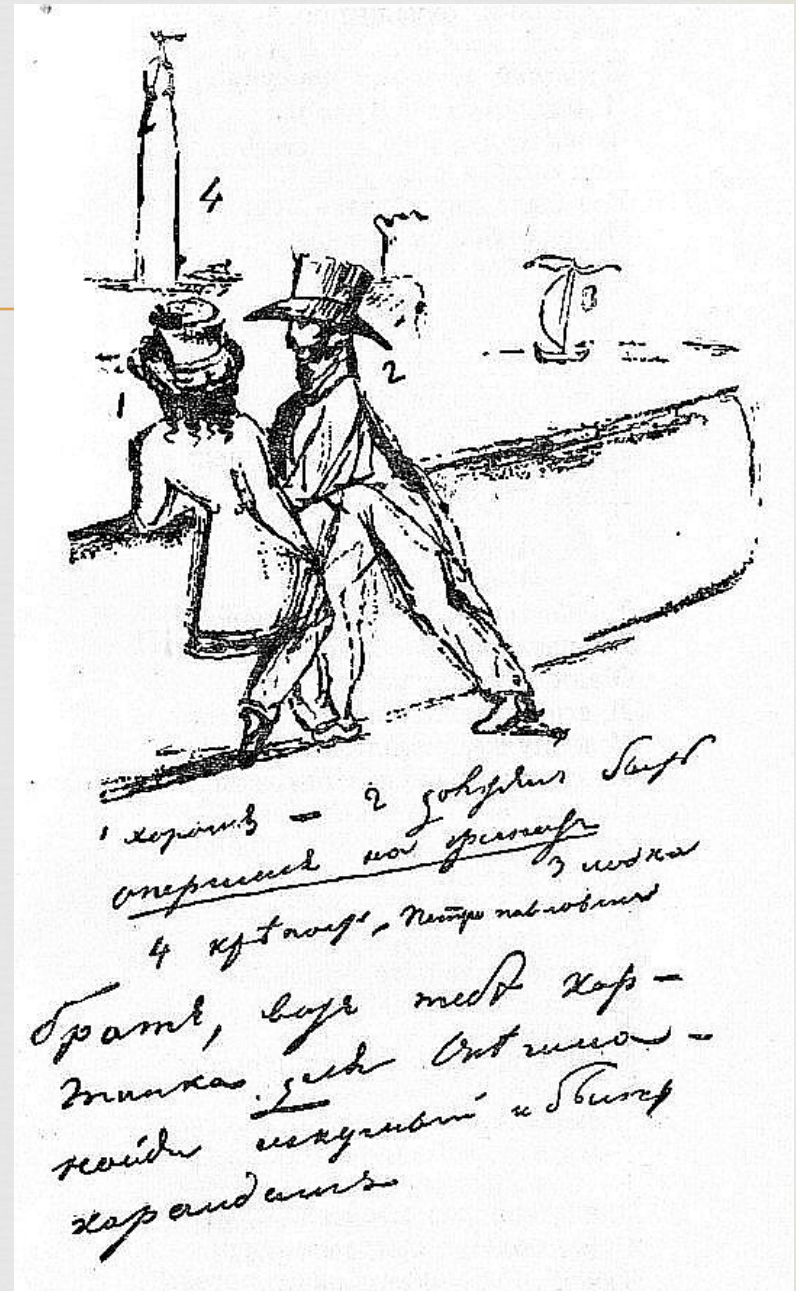 4
3
2
1
1 хорошъ — 2 долженъ быть
опершися на гранитъ
3 лодка
4 крѣпость, Петропавловская
братъ, вотъ тебѣ кар-
тинка для Онѣгина -
найди искусный и быстр
карандашъ